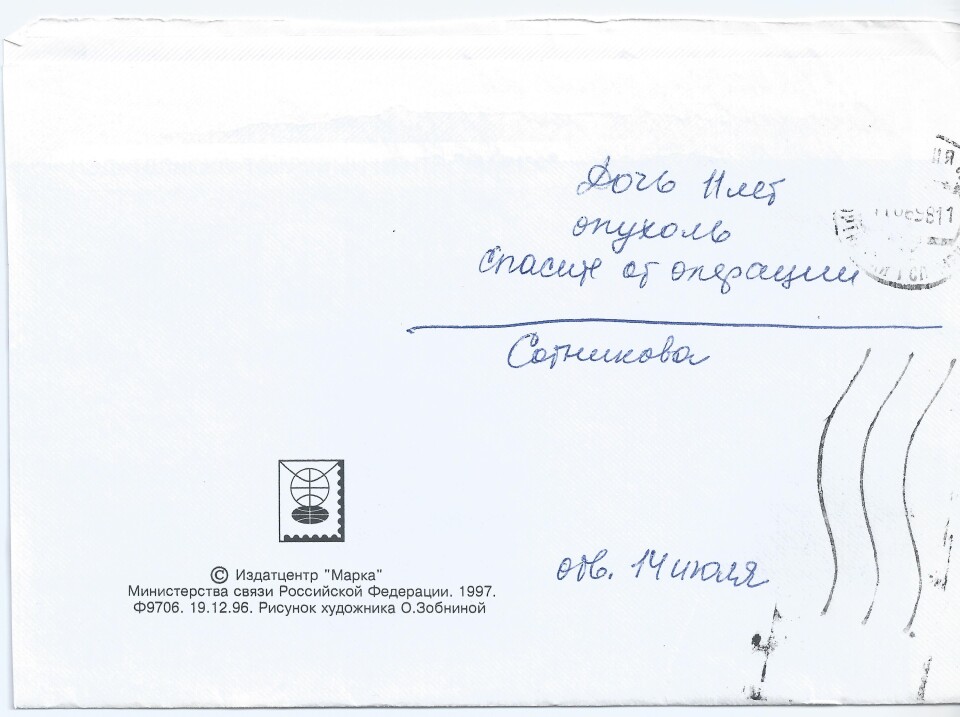 Дочь 11 лет
опухоль
спасите от операции
Сотникова
отв. 14 июля
© Издатцентр "Марка"
Министерства связи Российской Федерации. 1997.
Ф9706. 19.12.96. Рисунок художника О.Зобниной